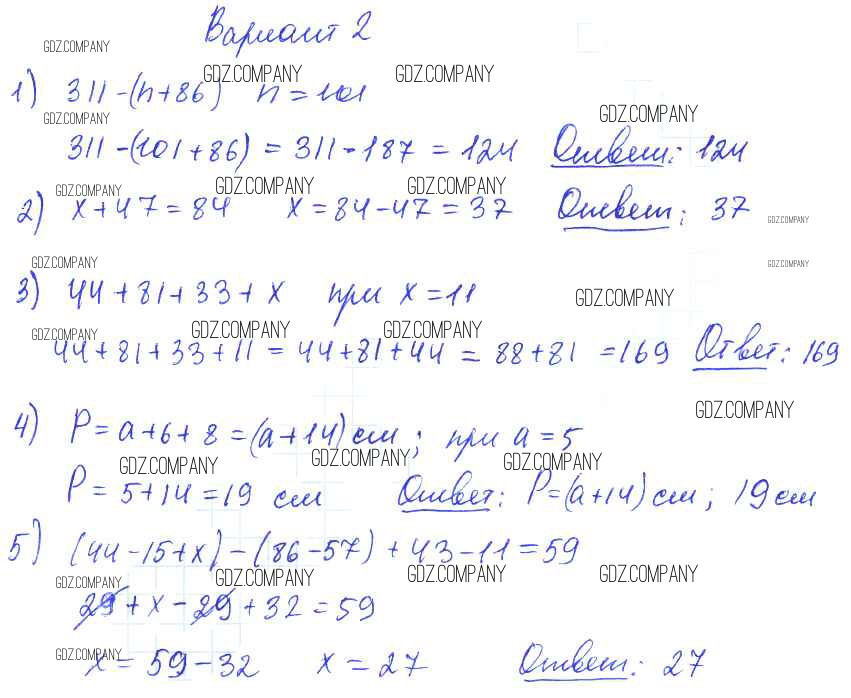 Вариант 2
GDZ.COMPANY
GDZ.COMPANY GDZ.COMPANY
1) 311-(n+86) n=101
GDZ.COMPANY GDZ.COMPANY
311-(101+86) = 311-187 = 124 Ответ: 124
GDZ.COMPANY GDZ.COMPANY GDZ.COMPANY
2) x+47=84 x=84-47=37 Ответ: 37
GDZ.COMPANY
GDZ.COMPANY GDZ.COMPANY
3) 44+81+33+x при x=11
GDZ.COMPANY
GDZ.COMPANY GDZ.COMPANY GDZ.COMPANY
44+81+33+11=44+81+44 = 88+81 =169 Ответ: 169
GDZ.COMPANY
4) P=a+6+8=(a+14) см; при a=5
GDZ.COMPANY GDZ.COMPANY GDZ.COMPANY
P=5+14=19 см Ответ: P=(a+14) см; 19 см
5) (44-15+x)-(86-57)+43-11=59
GDZ.COMPANY GDZ.COMPANY GDZ.COMPANY GDZ.COMPANY
29+x-29+32=59
GDZ.COMPANY
x=59-32 x=27 Ответ: 27